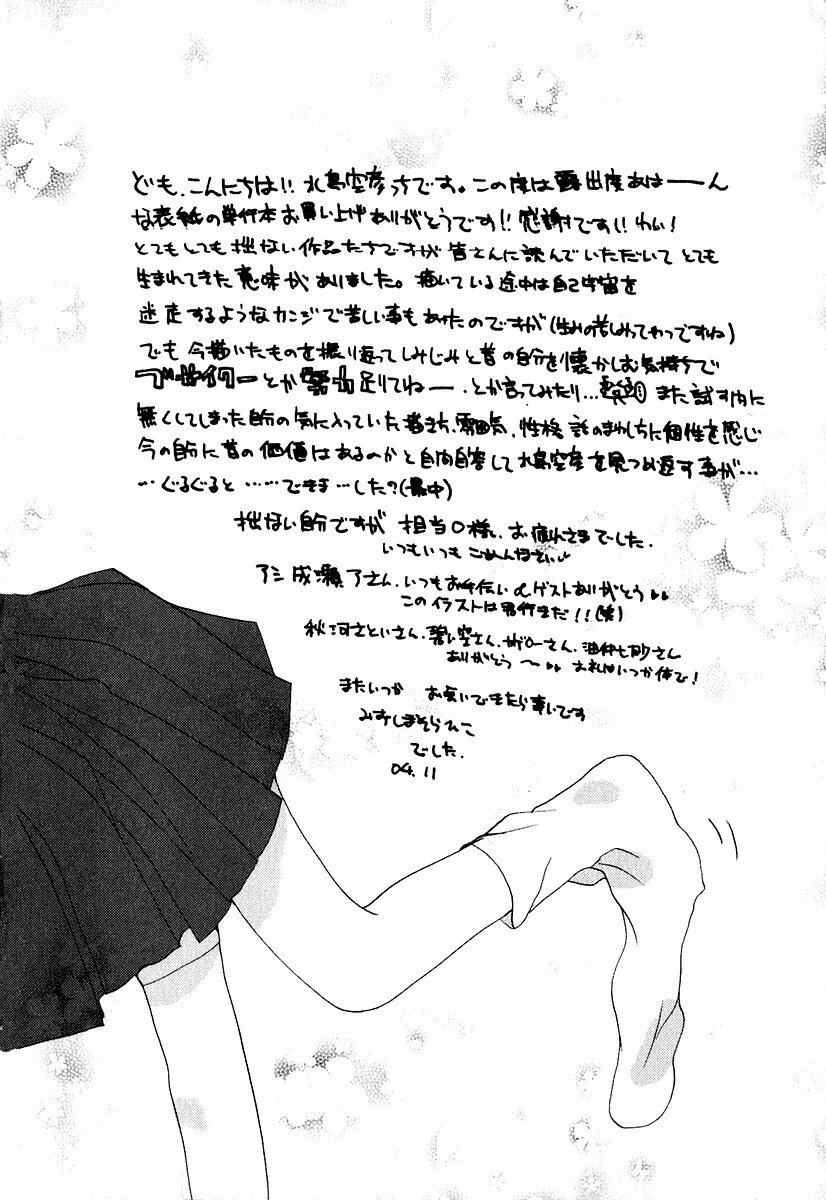 ども、こんにちは!! 水島空彦っちです。この度は露出度あはーーん
な表紙の単行本お買い上げありがとうです!! 感謝です!! わい!
とてもとても拙ない作品たちですが皆さんに読んでいただいてとても
生まれてきた意味がありました。描いている途中は自己宇宙を
迷走するようなカンジで苦しい事もあったのですが(生みの苦しみってやつですね)
でも今描いたものを振り返ってしみじみと昔の自分を懐かしむ気持ちで
とか 足りてねー、とか言ってみたり… また試す内に
無くしてしまった自分の気に入っていた描き方、雰囲気、性格 話のまわしちに個性を感じ
今の自分に昔の価値はあるのかと自問自答して水島空彦を見つめ返す事が…
…ぐるぐると……できま…した?(最中)
拙ない自分ですが 担当O様、お疲れさまでした.
いつもいつもごめんなさい
アシ成瀬了さん、いつもお手伝い&ゲストありがとう
このイラストは !!(笑)
秋河さといさん、碧い空さん、 さん、 砂さん
ありがとう〜 お礼はいつか体で!
またいつか お会いできたら幸いです
みずしまそらひこ
でした.
04.11